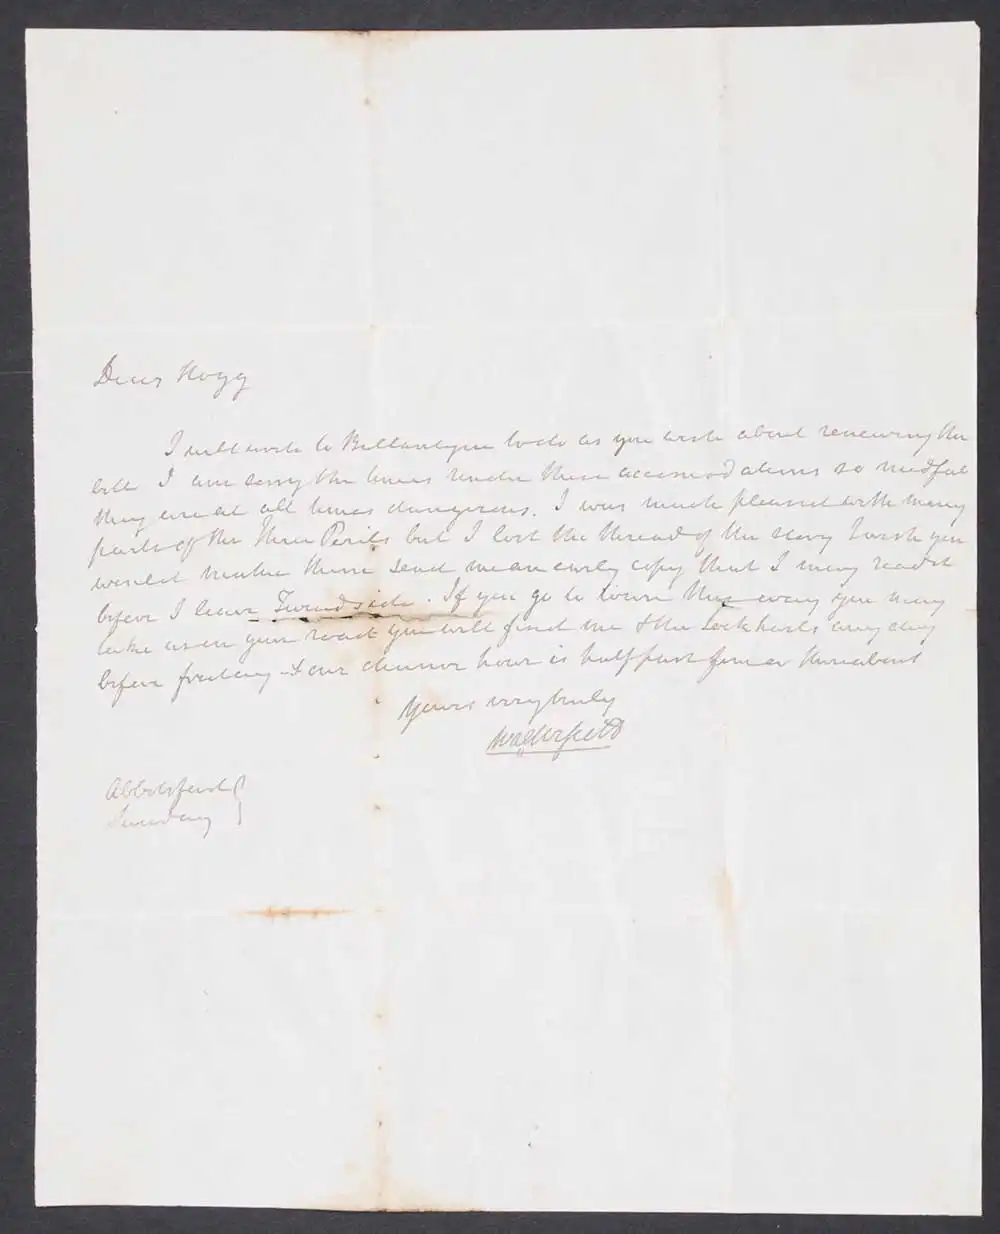 Dear Hogg
I will write to Ballantyne to do as you wish about renewing the
bill I am sorry the times render these accomodations so needful
they are at all times dangerous. I was much pleased with many
parts of the Three Perils but I lost the thread of the story I wish you
would make them send me an early copy that I may read it
before I leave Tweedside. If you go to town this way you may
take us in your road you will find me & the Lockharts any day
before friday & our dinner hour is half past four or thereabout
Yours very truly
Walter Scott
Abbotsford
Sunday